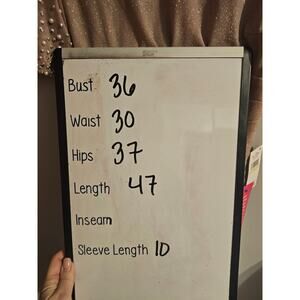 Bust 36
Waist 30
Hips 37
Length 47
Inseam
Sleeve Length 10